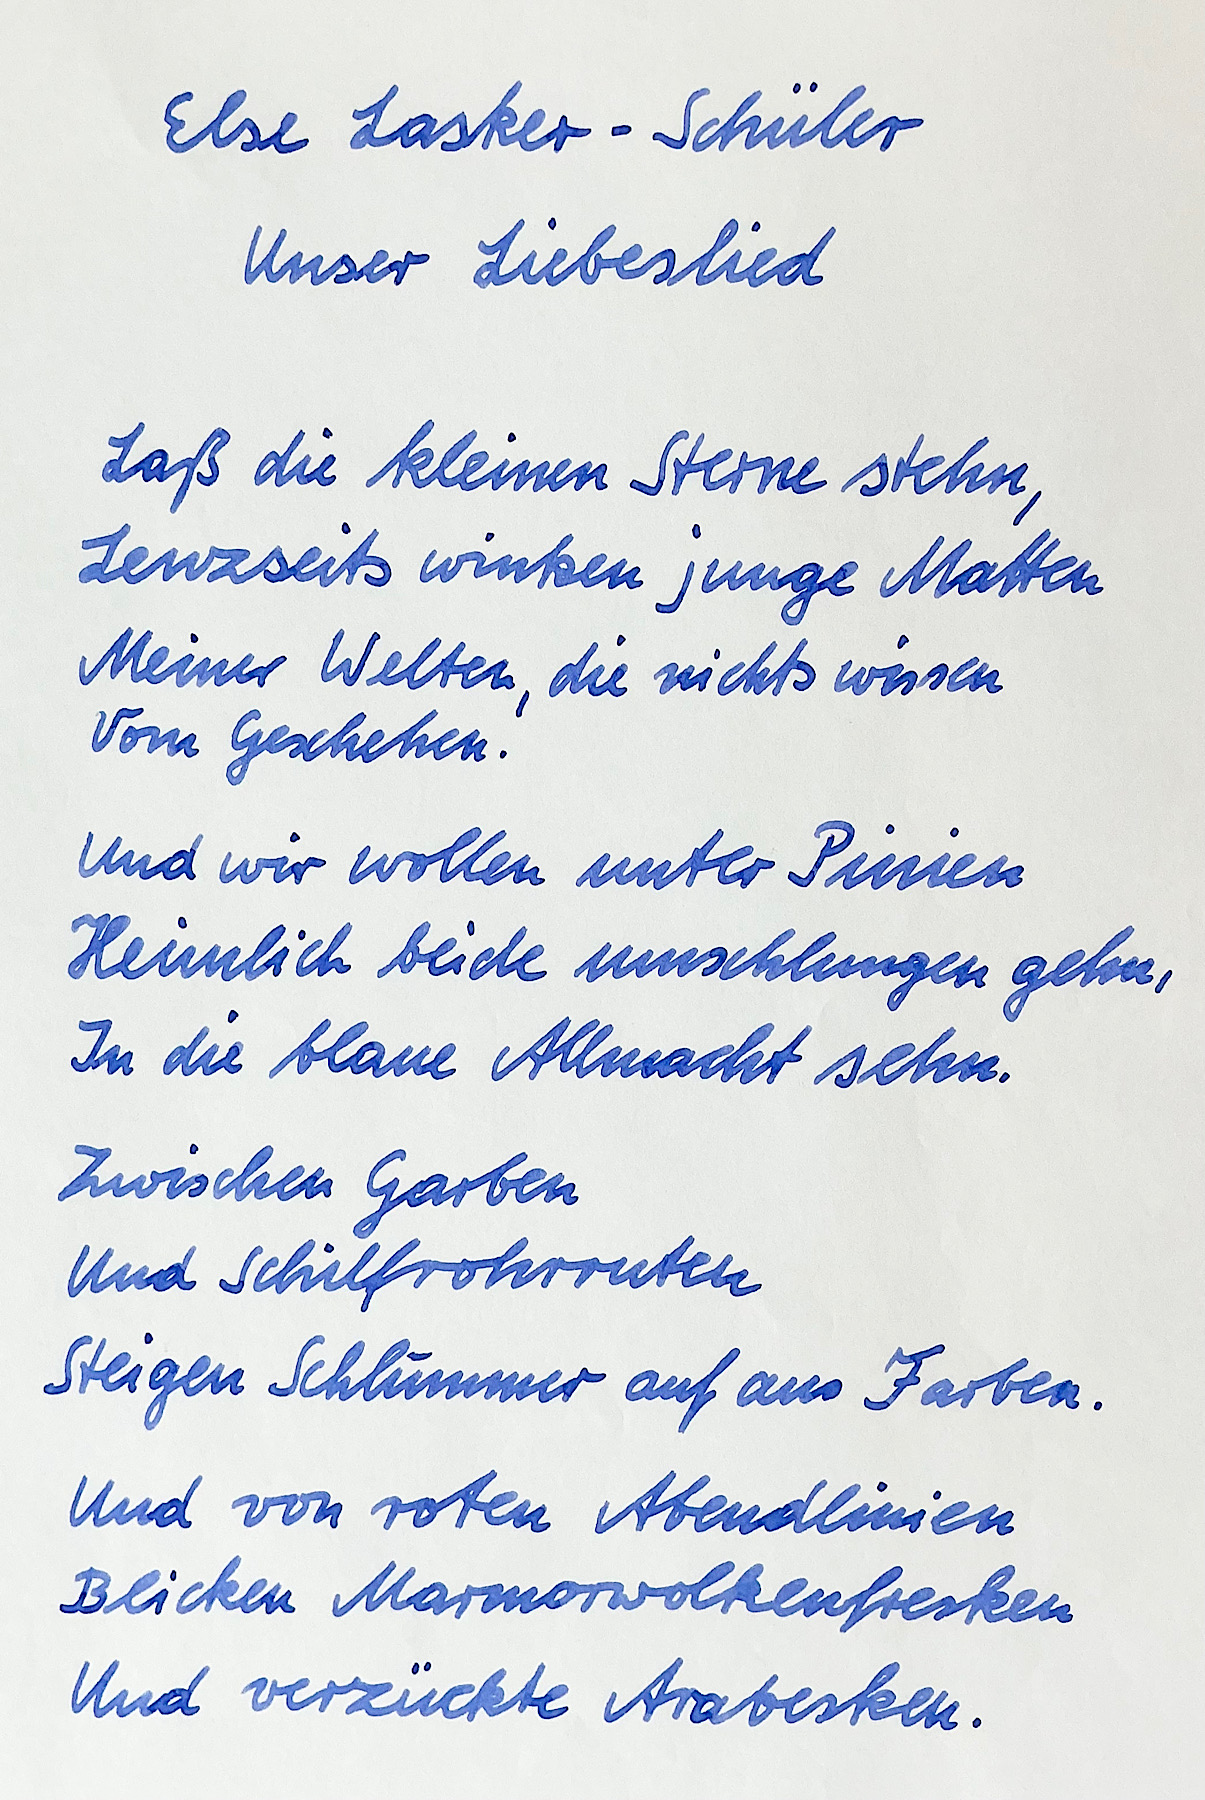 Else Lasker - Schüler
Unser Liebeslied
Laß die kleinen Sterne stehn,
Lenzseits winken junge Matten
Meiner Welten, die nichts wissen
Vom Geschehen.
Und wir wollen unter Pinien
Heimlich beide umschlungen gehn,
In die blaue Allmacht sehn.
Zwischen Garben
Und Schilfrohrruten
Steigen Schlummer auf aus Farben.
Und von roten Abendlinien
Blicken Marmorwolkenfresken
Und verzückte Arabesken.